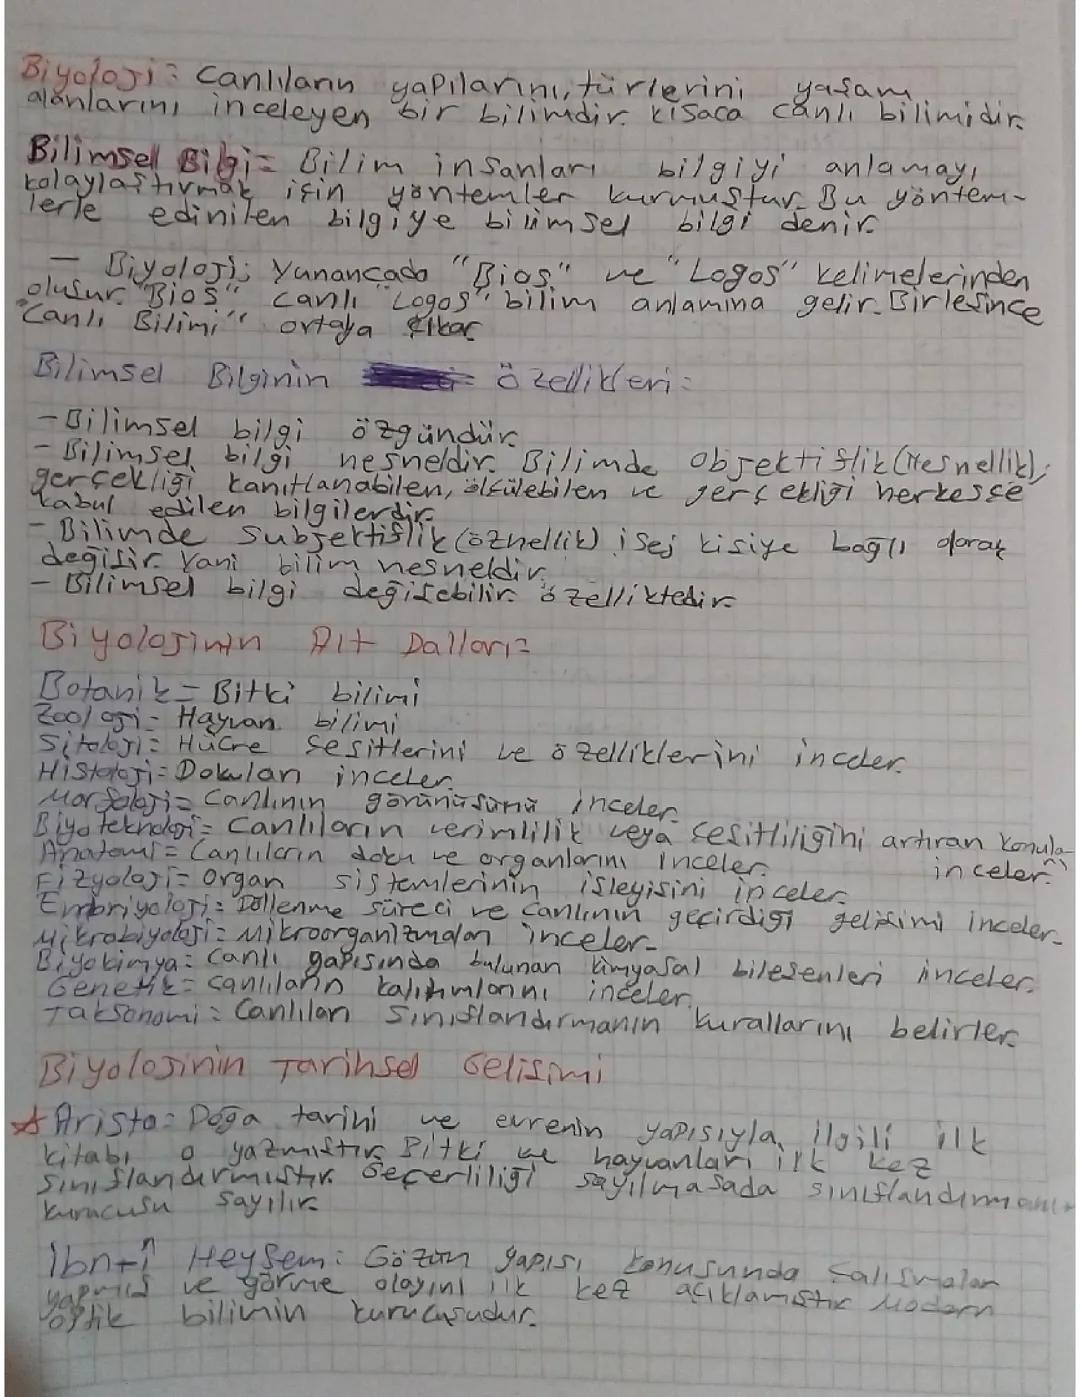 Biyoloji: Canlıların yapılarını, türlerini yaşam
alanlarını inceleyen bir bilimdir. Kısaca canlı bilimidir.
Bilimsel Bilgi= Bilim insanları bilgiyi anlamayı
kolaylaştırmak için yöntemler kurmuştur. Bu yöntem-
lerle edinilen bilgiye bilimsel bilgi denir.
- Biyoloji; Yunancada "Bios" ve "Logos" kelimelerinden
oluşur. "Bios" canlı "Logos" bilim anlamına gelir. Birleşince
"Canlı Bilimi" ortaya çıkar
Bilimsel Bilginin özellikleri:
- Bilimsel bilgi özgündür.
- Bilimsel bilgi nesneldir. Bilimde objektiflik (Nesnellik);
gerçekliği kanıtlanabilen, ölçülebilen ve gerçekliği herkesçe
kabul edilen bilgilerdir.
- Bilimde Subjektiflik (öznellik) ise; kişiye bağlı olarak
değişir. Yani bilim nesneldir.
- Bilimsel bilgi değişebilir özelliktedir.
Biyolojinin Alt Dalları=
Botanik= Bitki bilimi
Zooloji= Hayvan bilimi
Sitoloji= Hücre çeşitlerini ve özelliklerini inceler.
Histoloji= Dokuları inceler.
Morfoloji= Canlının görünüşünü inceler.
Biyoteknoloji= Canlıların verimlilik veya çeşitliliğini artıran konula-
rı inceler.
Anatomi= Canlıların doku ve organlarını inceler.
Fizyoloji= Organ sistemlerinin işleyişini inceler.
Embriyoloji= Döllenme süreci ve canlının geçirdiği gelişimi inceler.
Mikrobiyoloji= Mikroorganizmaları inceler.
Biyokimya= Canlı yapısında bulunan kimyasal bileşenleri inceler.
Genetik= Canlıların kalıtımlarını inceler.
Taksonomi= Canlıları Sınıflandırmanın kurallarını belirler.
Biyolojinin Tarihsel Gelişimi
Aristo= Doğa tarihi ve evrenin yapısıyla ilgili ilk
kitabı o yazmıştır. Bitki ve hayvanları ilk kez
sınıflandırmıştır. Geçerliliği sayılmasada sınıflandırmanın
kurucusu sayılır.
İbn-i Heysem: Gözün yapısı konusunda çalışmaları
yapmış ve görme olayını ilk kez açıklamıştır. Modern
optik bilimin kurucusudur.